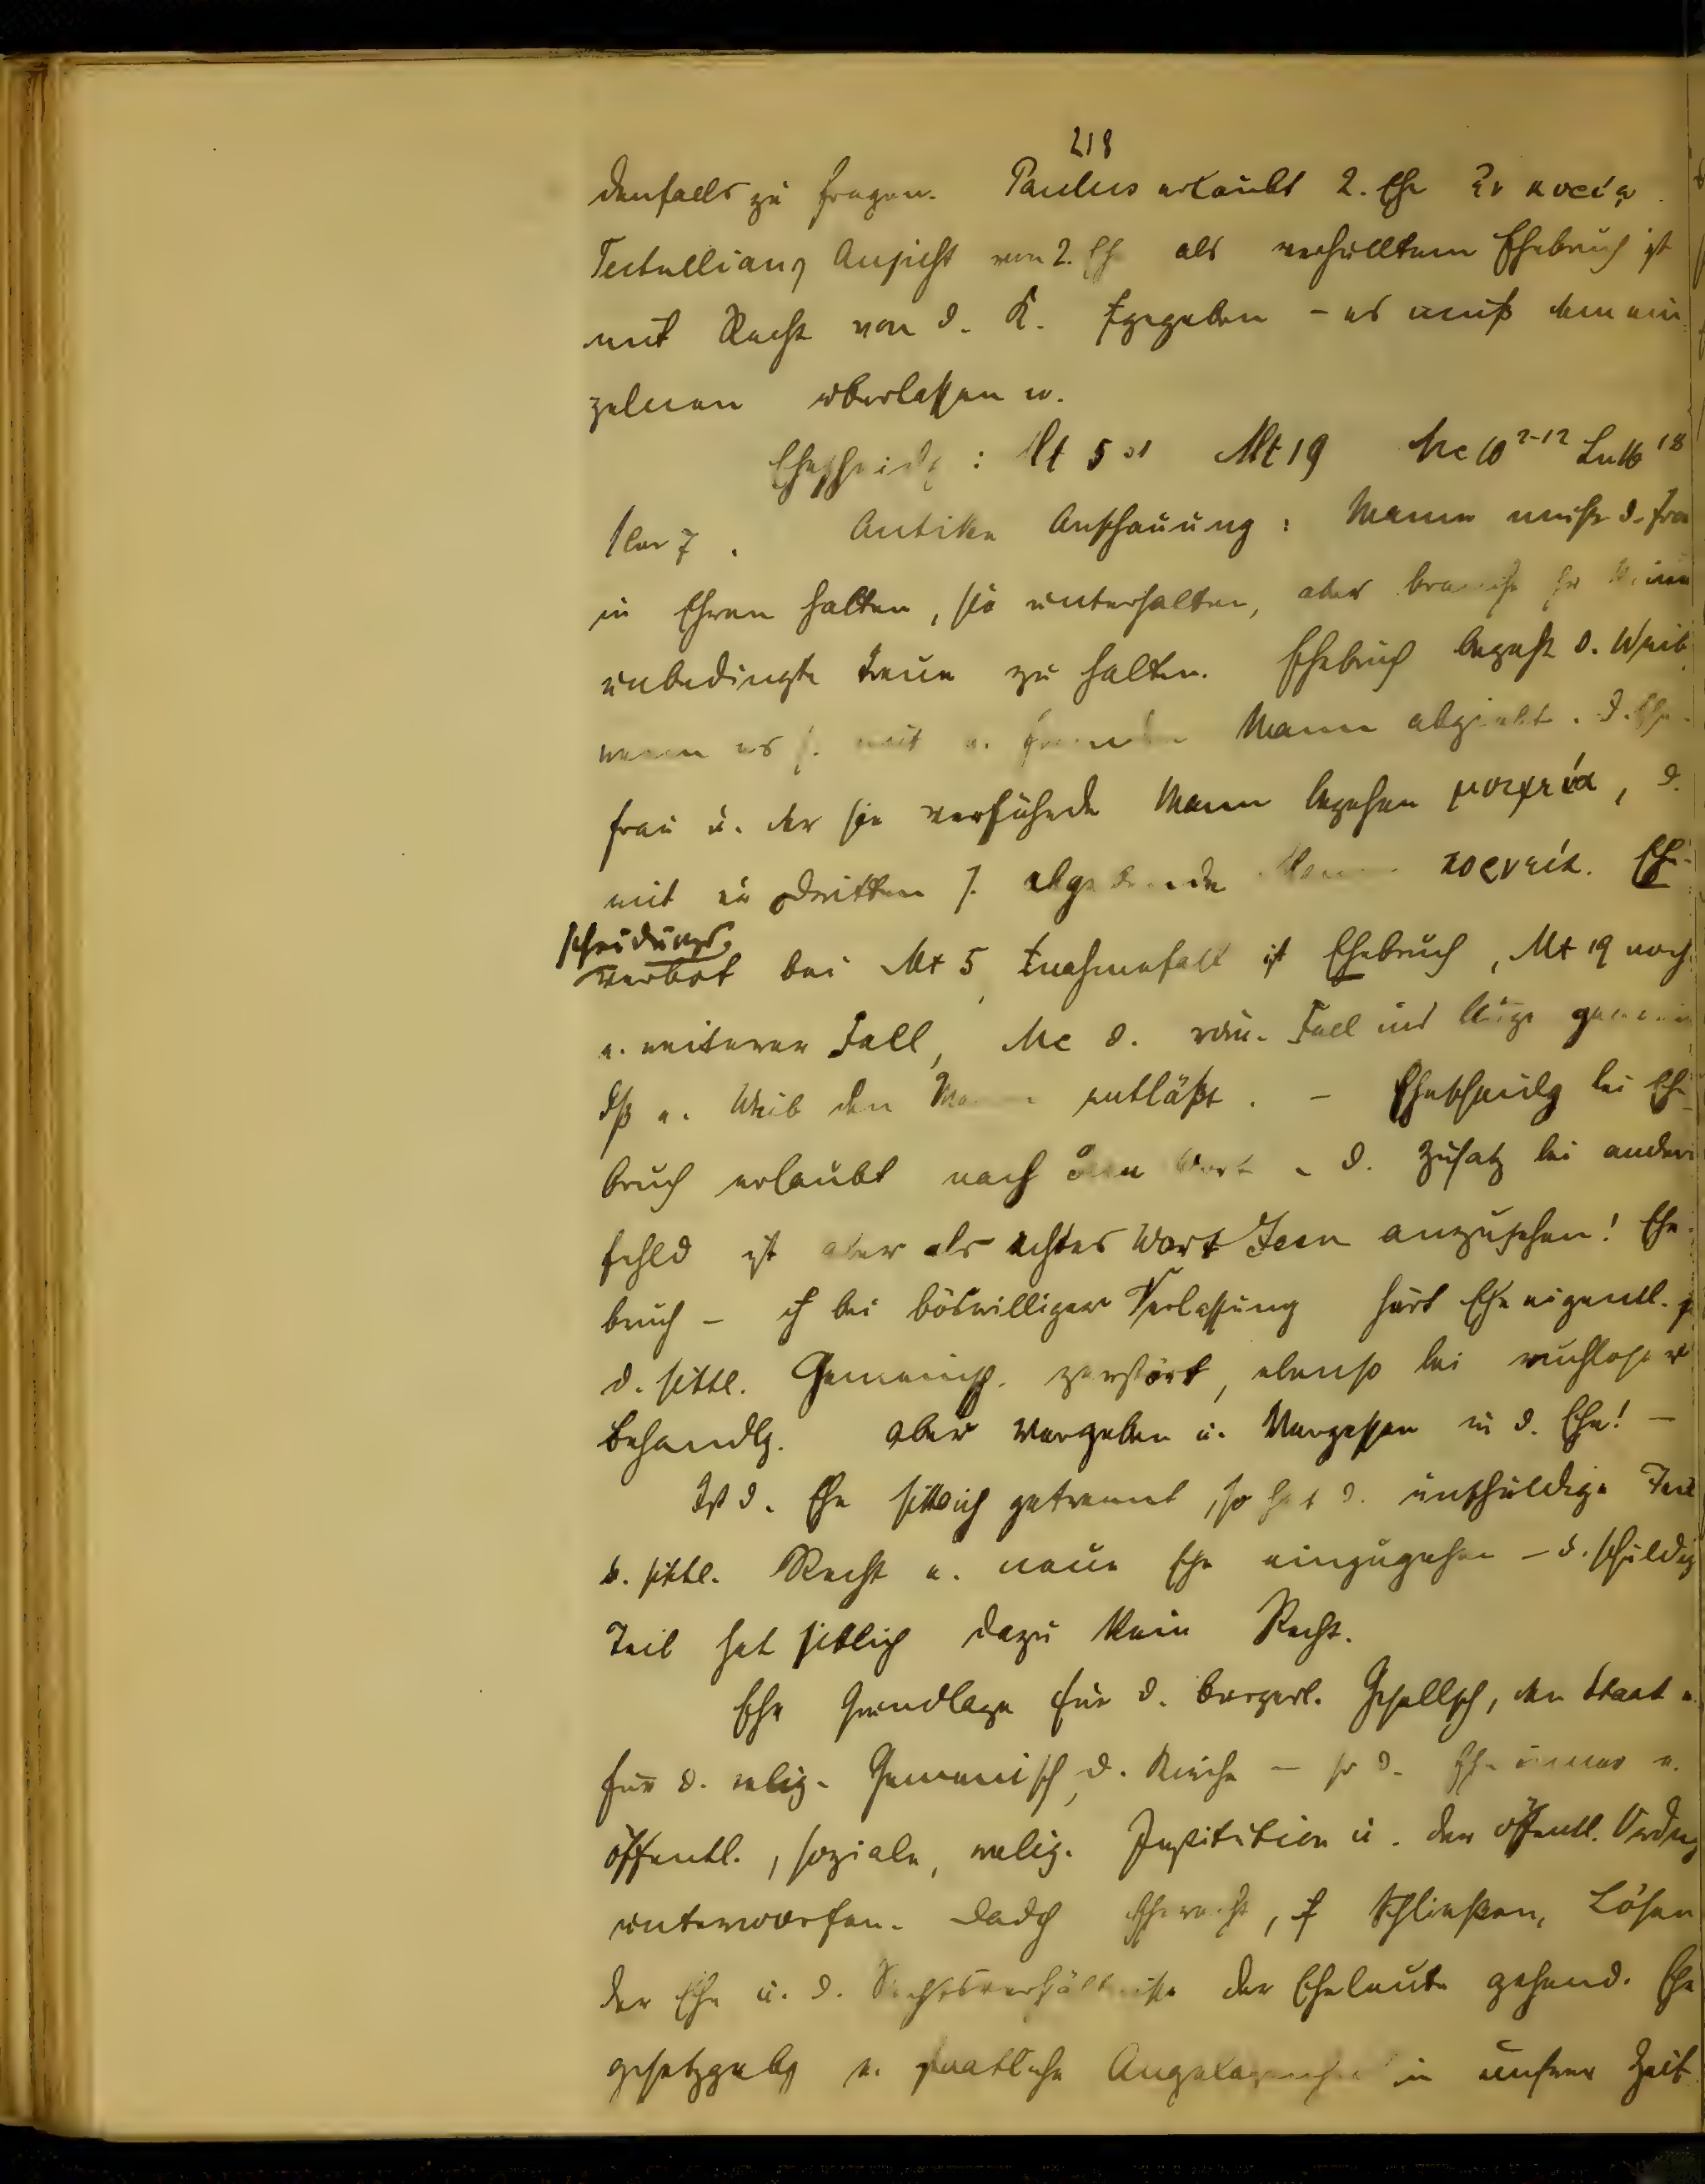 218
denfalls zu fragen. Paulus erlaubt 2. Ehe ἐν κυρίῳ
Tertullians Ansicht von 2. Ehe als verhülltem Ehebruch ist
mit Recht von d. K. gegeben – es muß dem ein
zelnen überlassen w.
Ehescheidg : Mt 5 31 Mt 19 Mc 10 2-12 Luk 16 18
1 Cor 7 . Antike Anschauung : Mann mußte d. Frau
in Ehren halten, sie unterhalten, aber brauchte ihr keine
unbedingte Treue zu halten. Ehebruch begeht d. Weib
wenn es s. mit e. fremden Mann abgiebt. D. Ehe-
frau u. der sie verführende Mann begehen μοιχεία, d.
mit dritten s. abgebende Mann πορνεία. Ehe-
scheidungs-
verbot bei Mt 5, nahmefall ist Ehebruch, Mt 19 noch
e. weiterer Fall, Mc d. röm. Fall ins Auge
dß e. Weib den Mann entläßt. – Ehescheidg bei Ehe
bruch erlaubt nach dem Wort – d. Zusatz bei andern
fehld ist aber als echtes Wort Jesu anzusehen! Ehe-
bruch – bei böswilliger Verlassung hört Ehe eigentl.
d. sittl. Gemeinsch. zerstört, ebenso bei ruchloser
Behandlg. Aber Vergeben u. Vergessen in d. Ehe! –
Ist d. Ehe sittlich getrennt, so hat d. unschuldige Teil
d. sittl. Recht e. neue Ehe einzugehen – d. schuldig
Teil hat sittlich dazu kein Recht.
Ehe Grundlage für d. bürgerl. Gesellsch, den Staat u.
für d. relig. Gemeinsch, d. Kirche – so d. Ehe immer e.
öffentl., soziale, relig. Institution u. der öffentl. Ordng
unterworfen. Dadch Eherecht, Schließen, Lösen
der Ehe u. d. Rechtsverhältnisse der Eheleute gehend. Ehe
gesetzgebg e. staatliche Angelegenheit in unsrer Zeit